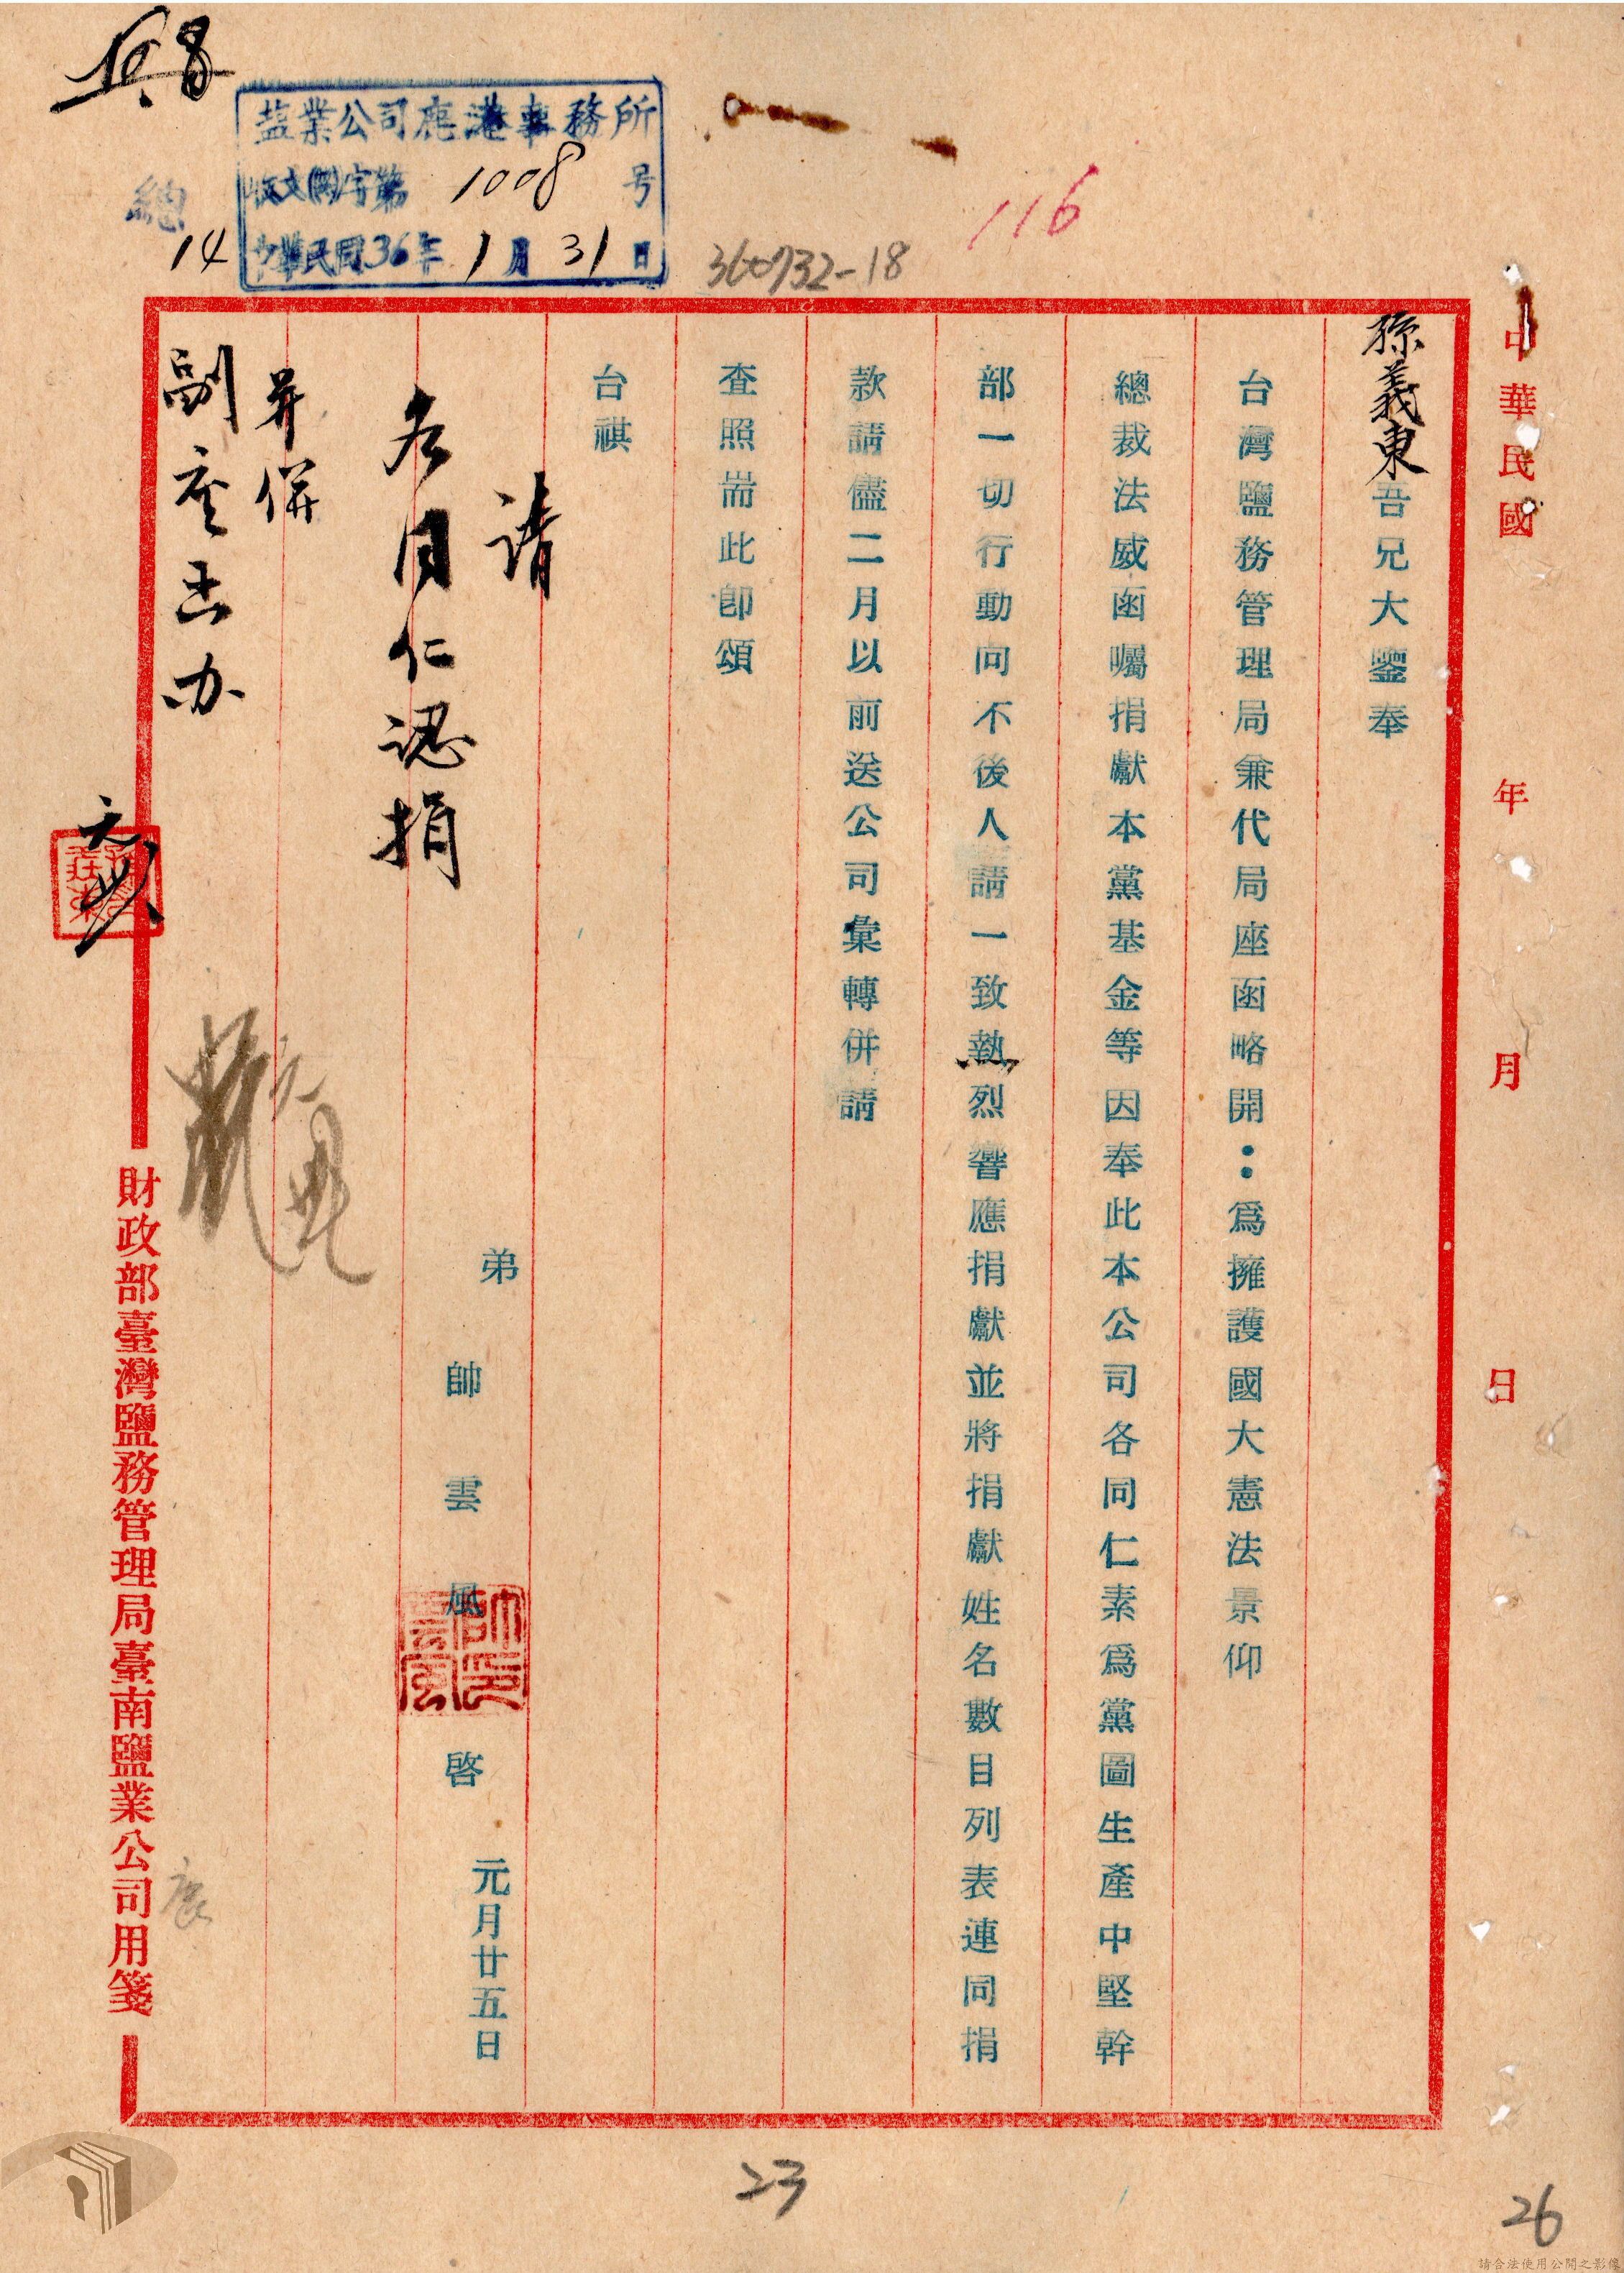 塩業公司鹿港事務所
收文(鹽)字第1008号
中華民國36年1月31日
總
14
116
360732-18
中華民國 年 月 日
孫義東吾兄大鑒奉
台灣鹽務管理局兼代局座函略開：爲擁護國大憲法景仰
總裁法威函囑捐獻本黨基金等因奉此本公司各同仁素爲黨圖生產中堅幹
部一切行動向不後人請一致熱烈響應捐獻並將捐獻姓名數目列表連同捐
款請儘二月以前送公司彙轉併請
查照耑此卽頌
台祺
弟 帥雲風 啓 元月廿五日
帥雲風印
請
各同仁認捐
財政部臺灣鹽務管理局臺南鹽業公司用箋
23
26
請合法使用公開之影像